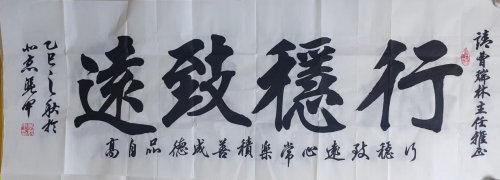 請曹瑞林主任雅正
行穩致遠
行穩致遠心常樂積善成德品自高
乙巳之秋於
北京